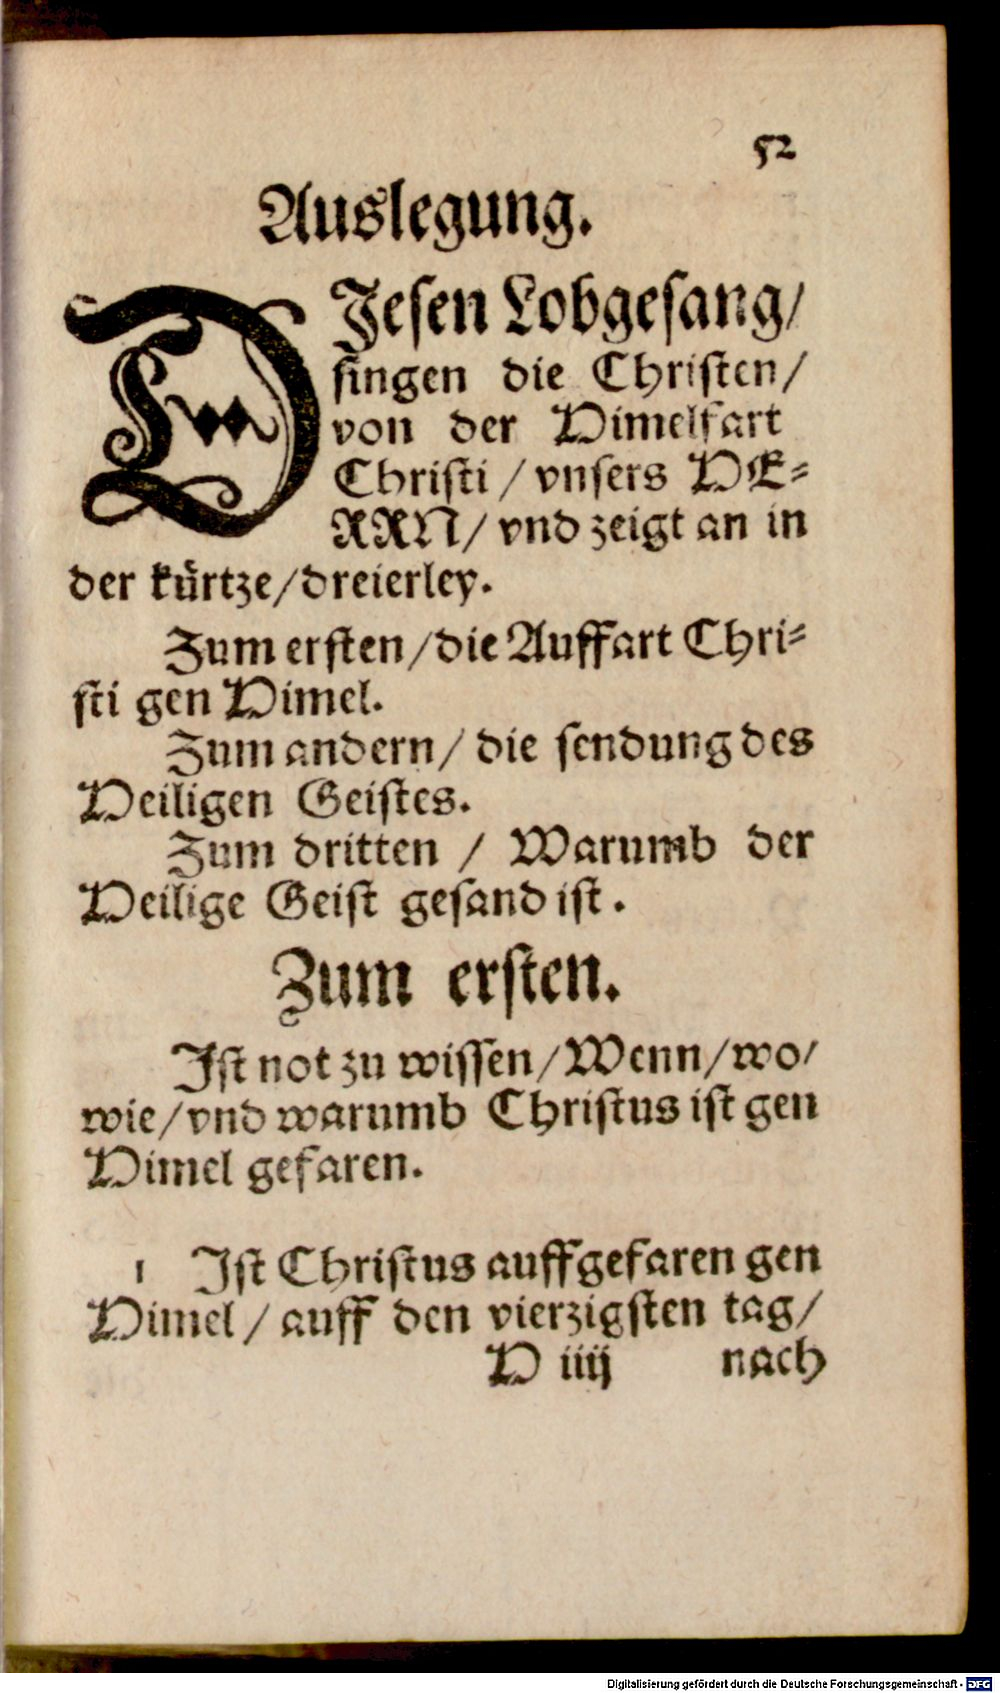 52
Auslegung.
DJesen Lobgesang/
singen die Christen/
von der Himelfart
Christi / vnsers HE-
RRN/ vnd zeigt an in
der kürtze/dreierley.
Zum ersten/die Auffart Chri-
sti gen Himel.
Zum andern/ die sendung des
Heiligen Geistes.
Zum dritten / Warumb der
Heilige Geist gesand ist.
Zum ersten.
Ist not zu wissen/Wenn/wo/
wie/vnd warumb Christus ist gen
Himel gefaren.
1 Ist Christus auffgefaren gen
Himel/ auff den vierzigsten tag/
H iiij nach
Digitalisierung gefördert durch die Deutsche Forschungsgemeinschaft - DFG